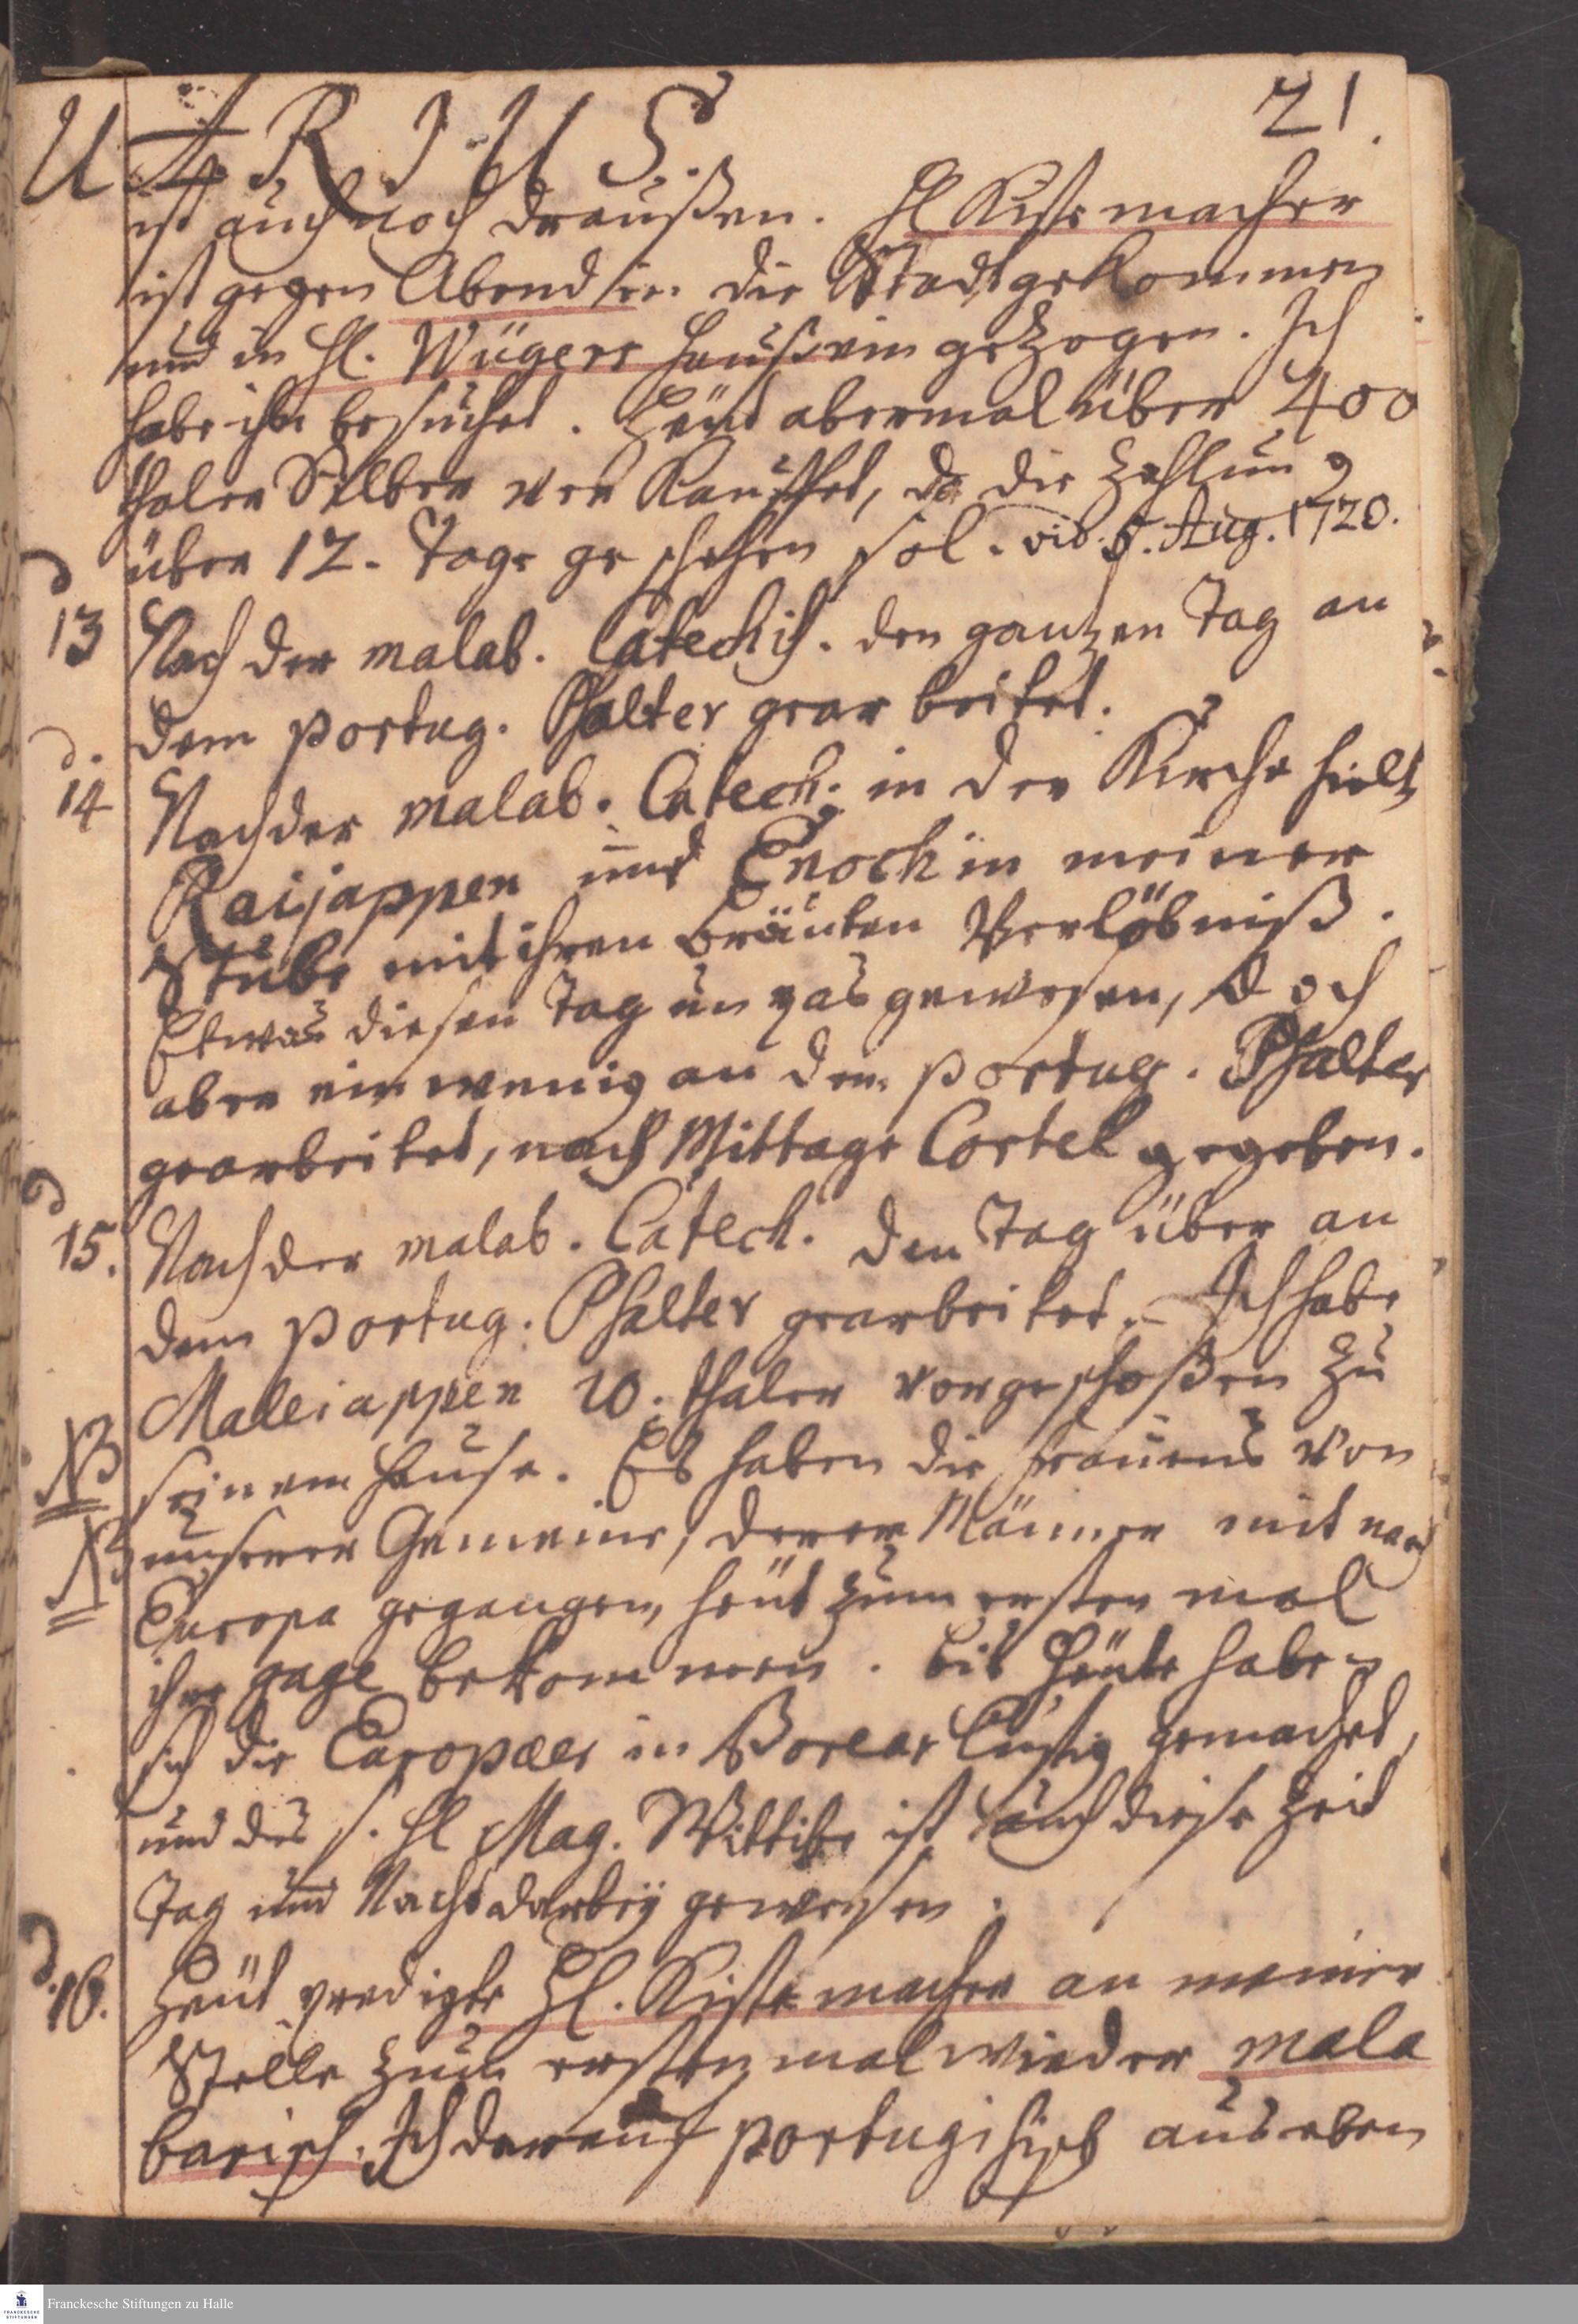 UARIUS. 21.
ist auch noch draußen. Hl Kistemacher
ist gegen Abend in die Stadt gekommen
und in Hl. Wügers Hauß eingezogen. Ich
habe ihn besuchet. Heut abermal über 400
thaler Silber verkauffet, da die Zahlung
über 12. Tage geschehen sol. vid. 5. Aug. 1720.
d 13 Nach der malab. Catechis. den gantzen Tag an
dem portug. Psalter gearbeitet.
d. 14 Nach der malab. Catech. in der Kirche hielt
Raijappen und Enoch in meiner
Stube mit ihren Bräuten Verlöbniß.
Etwas diesen Tag unpas gewesen, doch
aber ein wenig an dem portug. Psalter
gearbeitet, nach Mittage Cortel gegeben.
d 15. Nach der malab. Catech. den Tag über an
dem portug. Psalter gearbeitet. Ich habe
Maleiappen 20. thaler vorgeschoßen zu
NB seinem Hause. Es haben die Frauens von
NB unserer Gemeine, derer Männer mit nach
Europa gegangen, heut zum ersten mal
ihre gage bekommen. bis heute haben
sich die Europæer in Borear lustig gemachet,
und des s. Hl Mag. Wittibe ist auch diese Zeit
Tag und Nacht darbey gewesen.
d. 16. Heut predigte Hl. Kistemacher an meiner
Stelle zum ersten mal wieder mala
barisch. Ich darauf portugisisch aus eben
Franckesche Stiftungen zu Halle